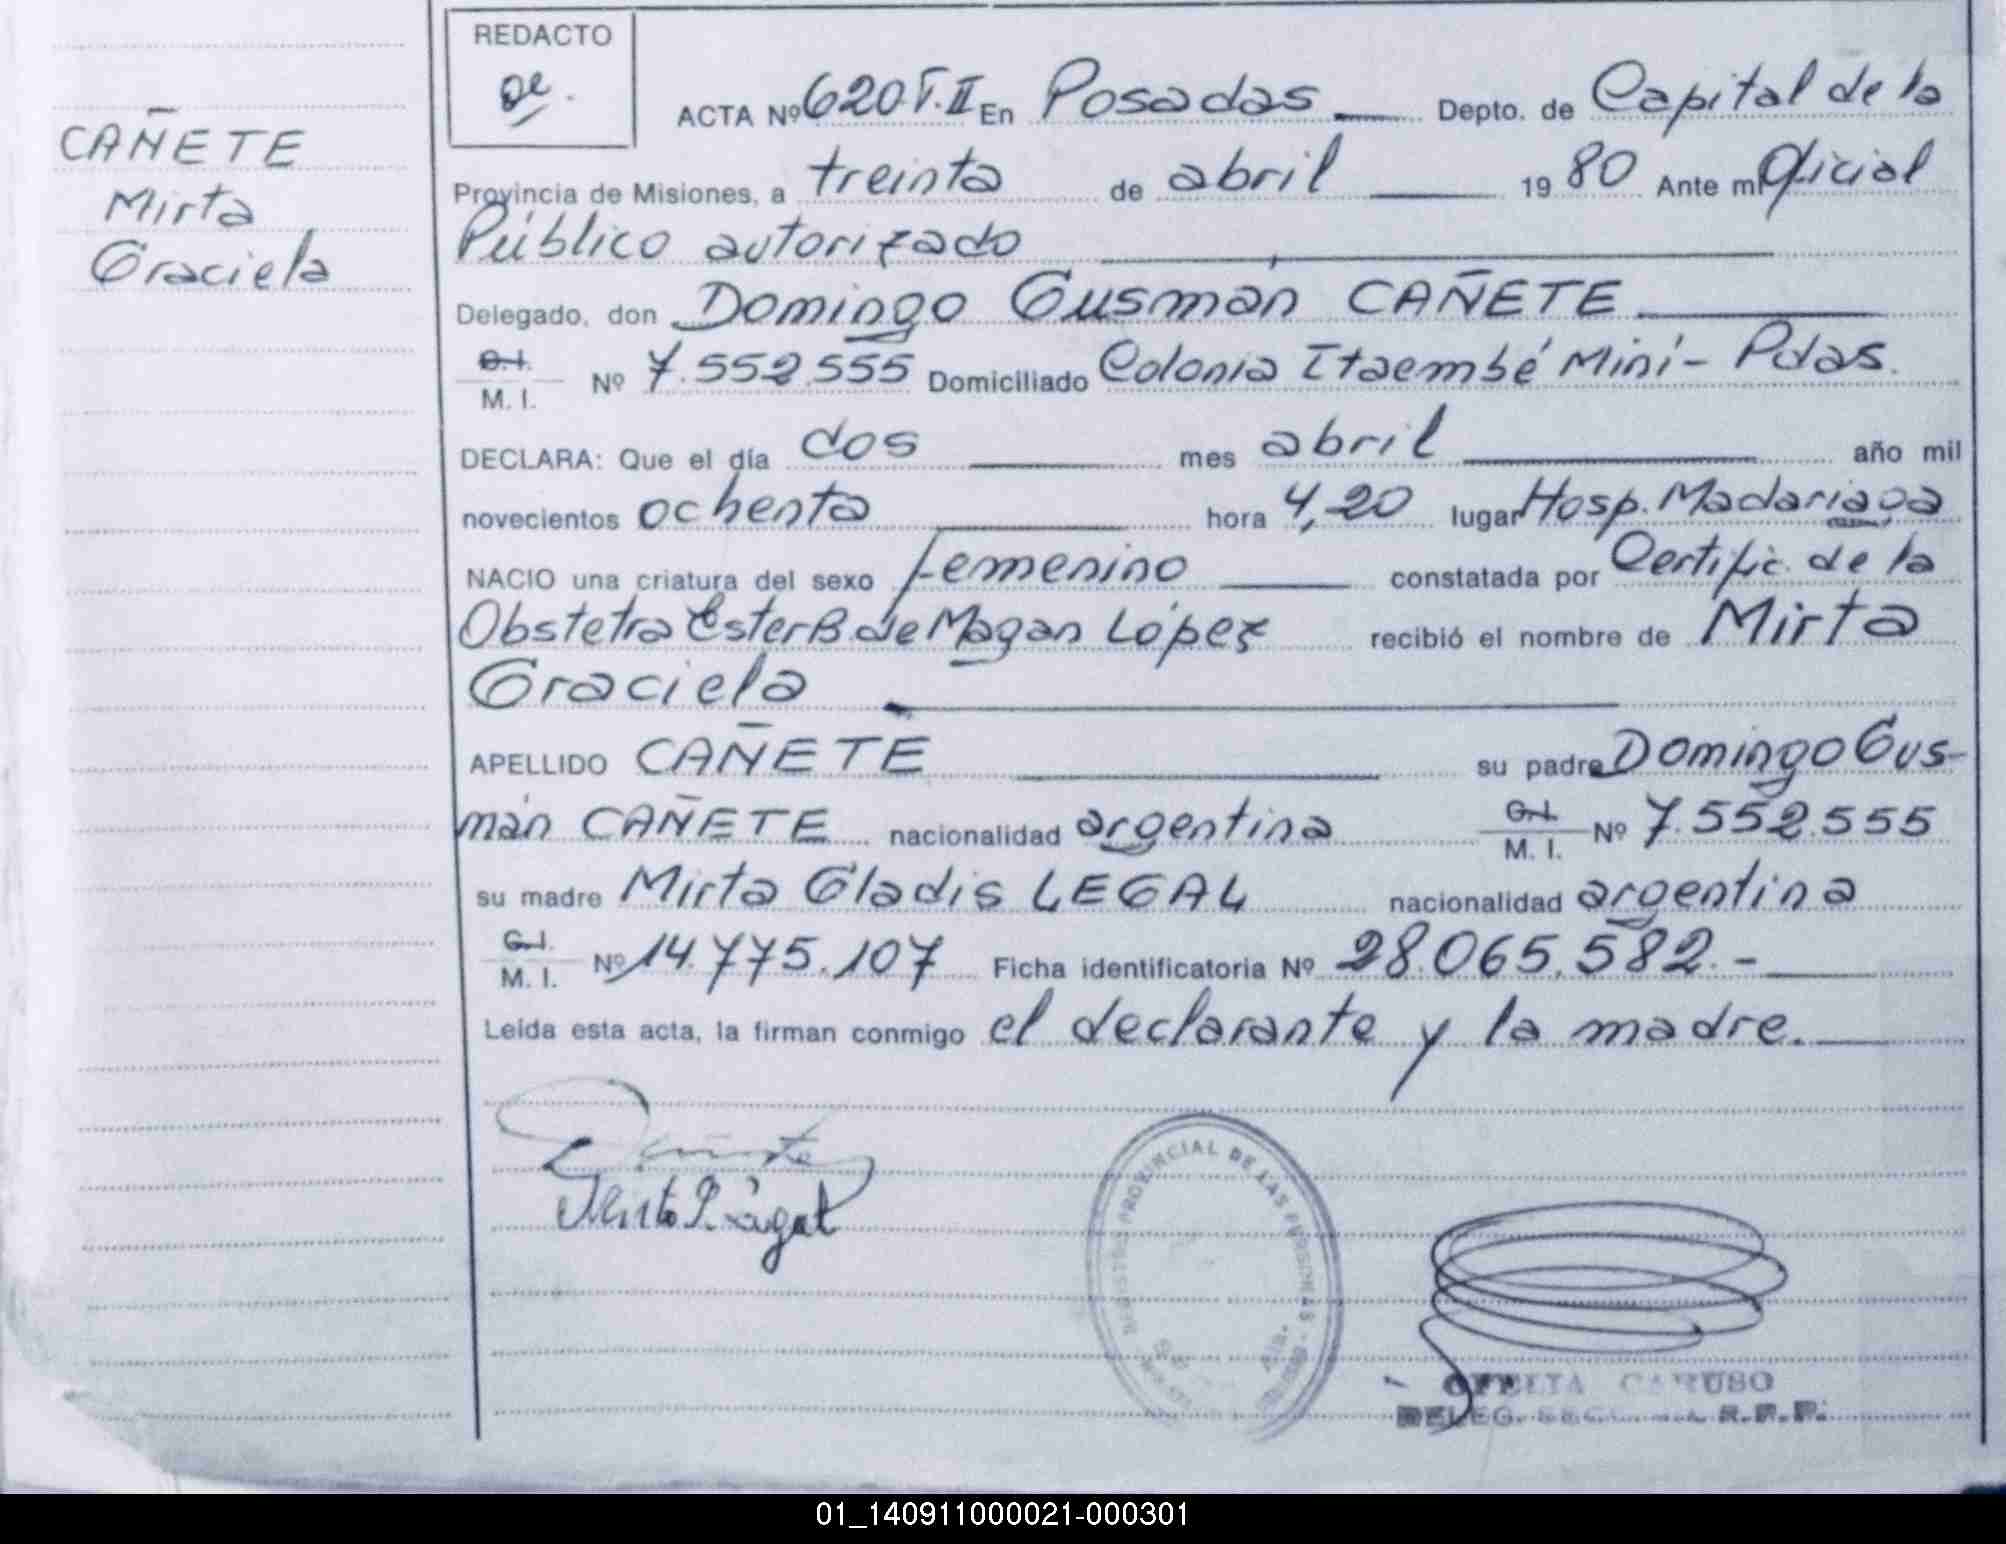 CAÑETE
Mirta
Graciela
REDACTO
ACTA Nº 620 T.II En Posadas Depto. de Capital de la
Provincia de Misiones, a treinta de abril 1980 Ante mi Oficial
Público autorizado
Delegado, don Domingo Gusman CAÑETE
C.I.
M. I. Nº 7.552.555 Domiciliado Colonia Itaembé Miní - Pdas.
DECLARA: Que el día dos mes abril año mil
novecientos ochenta hora 4,20 lugar Hosp. Madariaga
NACIO una criatura del sexo femenino constatada por Certific. de la
Obstetra Ester B. de Magan López recibió el nombre de Mirta
Graciela
APELLIDO CAÑETE su padre Domingo Gus-
mán CAÑETE nacionalidad argentina C.I. M. I. Nº 7.552.555
su madre Mirta Gladis LEGAL nacionalidad argentina
C.I.
M. I. Nº 14.775.107 Ficha identificatoria Nº 28.065.582.-
Leída esta acta, la firman conmigo el declarante y la madre.
REGISTRO PROVINCIAL DE LAS PERSONAS
OFELIA CARUSO
DELEG. R.P.P.
01_140911000021-000301